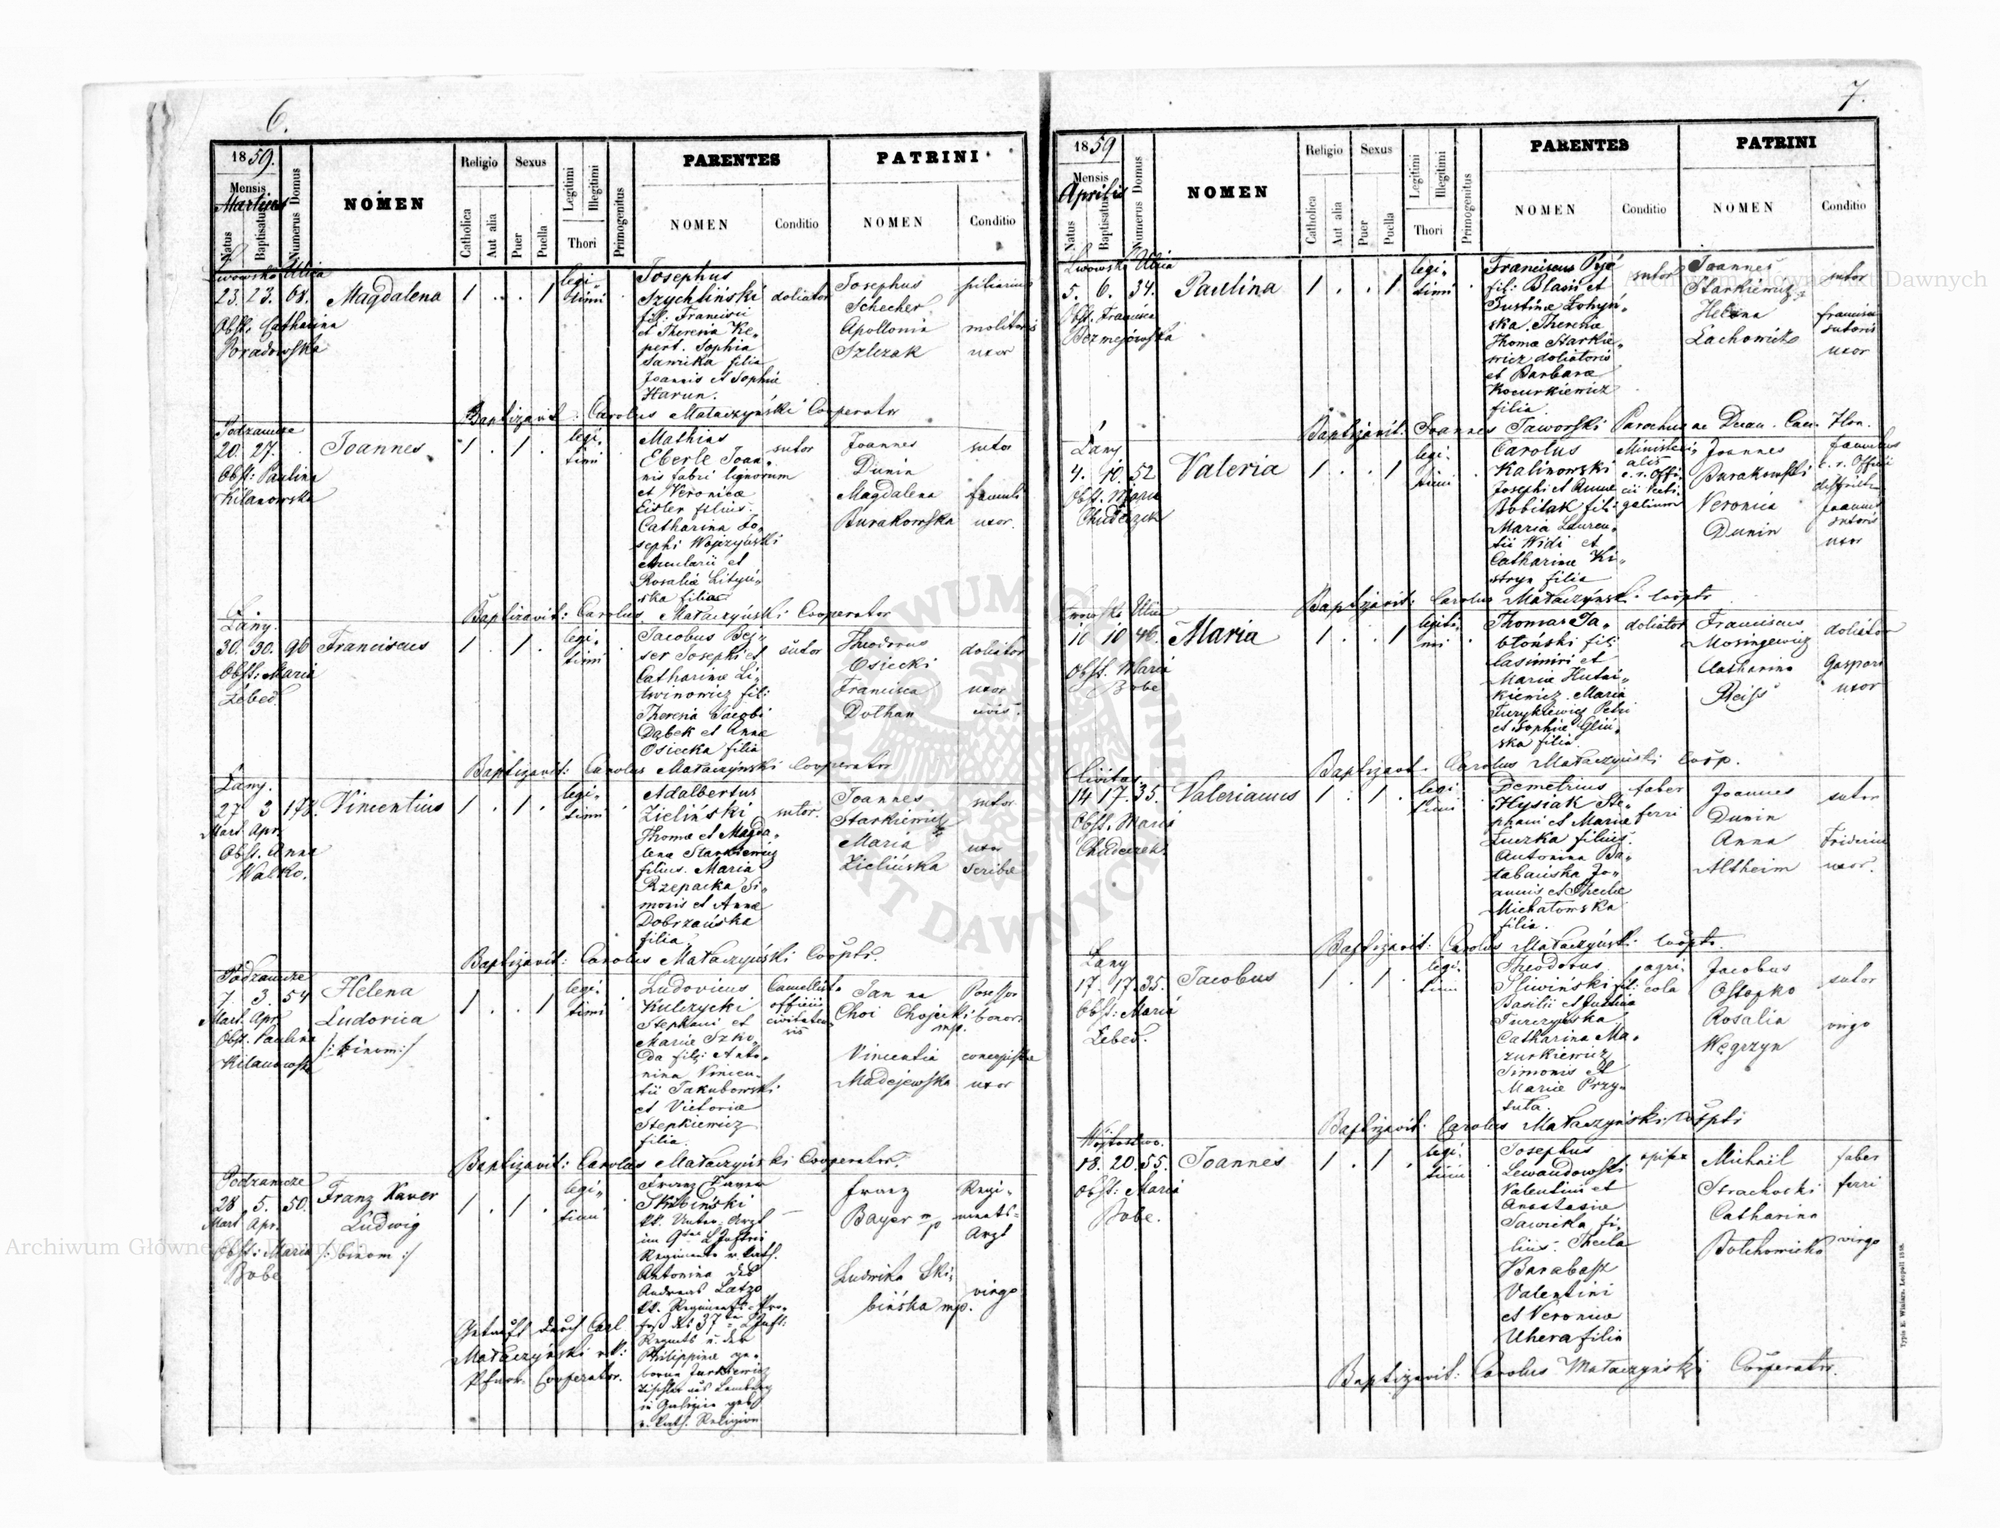 6.
1859.
Mensis
Martius
Natus
Baptisatus
Numerus Domus
NOMEN
Religio
Catholica
Aut alia
Sexus
Puer
Puella
Legitimi
Illegitimi
Thori
Primogenitus
PARENTES
NOMEN
Conditio
PATRINI
NOMEN
Conditio
Lwowska Ulica
23. 23. 68.
Obst. Catharina
Poradowska
Magdalena
1 . . 1
legi-
timi
Josephus
Szychliński
fil. Francisci
et Theresia Ke-
pert. Sophia
Sawicka filia
Joannis et Sophia
Harun.
doliator
Josephus
Schecher
Apollonia
Szlezak
molitoris
uxor
Baptizavit: Carolus Mataczyński Cooperator
Podzamcze
20. 27.
Obst: Paulina
Kilanowska
Joannes
1 . 1 .
legi-
timi
Mathias
Eberle Joan-
nis fabri lignorum
et Veronica
Eisler filius.
Catharina Jo-
sephi Wojczyński
et
Rosalia Lityń-
ska filia
sutor
Joannes
Dunin
Magdalena
Burakowska
sutor
famuli
uxor.
Baptizavit: Carolus Mataczyński Cooperator
Łany.
30. 30. 96
Obst: Maria
Lebed.
Franciscus
1 . 1 .
legi-
timi
Jacobus Bej-
ser Josephi et
Catharina Li-
twinowicz fil:
Theresia Jacobi
Dąbek et Anna
Osiecka filia
sutor
Theodorus
Osiecki
Francisca
Dolhan
doliator
uxor
Baptizavit: Carolus Mataczyński Cooperator
Łany.
27 3 178.
Mart. Apr.
Obst. Anna
Walko.
Vincentius
1 . 1 .
legi-
timi
Adalbertus
Zieliński
Thoma et Magda-
lena Starkiewicz
filius. Maria
Rzepacka Si-
monis et Anna
Dobrzańska
filia
sutor.
Joannes
Starkiewicz
Maria
Zielińska
sutor
uxor
scriba
Baptizavit: Carolus Mataczyński Coopts.
Podzamcze
7. 3. 54
Mart. Apr.
Obst. Paulina
Kilanowska
Helena
Ludovica
/: binom :/
1 . . 1
legi-
timi
Ludovicus
Kulczycki
Stephani et
Maria Szko-
da fil: Anto-
nina Vincen-
tii Jakubowski
et Victoria
Stepkiewicz
filia
Cancellista
officii
civitaten-
sis
Jan na
Choi Chojecki
mp.
Vincentia
Madejewska
Possessor
bonor.
concepista
uxor
Baptizavit: Carolus Mataczyński Cooperator.
Podzamcze
28. 5. 50.
Mart. Apr.
Obst: Maria
Bobe
Franz Xaver
Ludwig
/: binom :/
1 . 1 .
legi-
timi
Franz Xaver
Skibiński
kk. Unter-Arzt
Antonina des
Andreas Latzo
Franz
Bayer mp
Ludwika Ski-
bińska mp.
Regi-
ments-
Arzt
virgo
Getauft durch Carl
Mataczyński
Cooperator.
7.
1859
Mensis
Aprilis
Natus
Baptisatus
Numerus Domus
NOMEN
Religio
Catholica
Aut alia
Sexus
Puer
Puella
Legitimi
Illegitimi
Thori
Primogenitus
PARENTES
NOMEN
Conditio
PATRINI
NOMEN
Conditio
Lwowska Ulica
5. 6. 34.
Obst. Francisca
Bezmejowska
Paulina
1 . . 1
legi-
timi
Franciscus
fil: Blasii et
Justina
ska. Theresia
Thoma Starkie-
wicz doliatoris
et Barbara
Kocurkiewicz
filia
sutor
Joannes
Starkiewicz
Helena
Lachowicz
sutor
francisci
sutoris
uxor
Baptizavit: Joannes Jaworski Parochus ac Decan. Can. Hon.
Łany
4. 10. 52
Obst. Maria
Chudeczek
Valeria
1 . . 1
legi-
timi
Carolus
Kalinowski
Josephi et Anna
Bobitak fil:
Maria Lauren-
tii Widi et
Catharina Ki-
stryn filia
Joannes
Burakowski
Veronica
Dunin
Joannis
sutoris
uxor
Baptizavit: Carolus Mataczyński Coopts.
Lwowska Ulica
10 10 46.
Obst. Maria
Bobe
Maria
1 . . 1
legiti-
mi
Thomas Ja-
błoński fil:
Casimiri et
Maria Hutni-
kiewicz. Maria
Jurykiewicz Petri
et Sophia Gliń-
ska filia.
doliator
Franciscus
Mosingewicz
Catharina
Reiss
doliator
Gaspari
uxor
Baptizavit: Carolus Mataczyński Coop.
Civitas.
14 17. 35.
Obst. Maria
Chudeczek.
Valerianus
1 . 1 .
legi-
timi
Demetrius
Hysiak Ste-
phani et Maria
Luczka filius.
Antonina Ba-
tabańska Jo-
annis et Thecla
Michałowska
filia.
faber
ferri
Joannes
Dunin
Anna
Altheim
sutor
Friderici
uxor.
Baptizavit: Carolus Mataczyński Coopts.
Łany
17. 17. 35.
Obst: Maria
Lebed.
Jacobus
1 . 1 .
legi-
timi
Theodorus
Sliwiński fil:
Basilii et Justina
Turczyńska
Catharina Ma-
zurkiewicz
Simonis et
Maria Przy-
tuła
agri-
cola
Jacobus
Ostapko
Rosalia
Węgrzyn
sutor
virgo
Baptizavit: Carolus Mataczyński Coopts
Wójtostwo.
18. 20. 55.
Obst: Maria
Bobe.
Joannes
1 . 1 .
legi-
timi
Josephus
Lewandowski
Valentini et
Anastasia
Sawicka fi-
lius. Thecla
Barabasz
Valentini
et Veronica
Uhera filia
opifex
Michaël
Strachocki
Catharina
Bolechowicka
faber
ferri
virgo
Baptizavit: Carolus Mataczyński Cooperator.
Typis E. Winiarz. Leopoli 1858.
Archiwum Główne Akt Dawnych
Archiwum Główne Akt Dawnych
ARCHIWUM GŁÓWNE AKT DAWNYCH